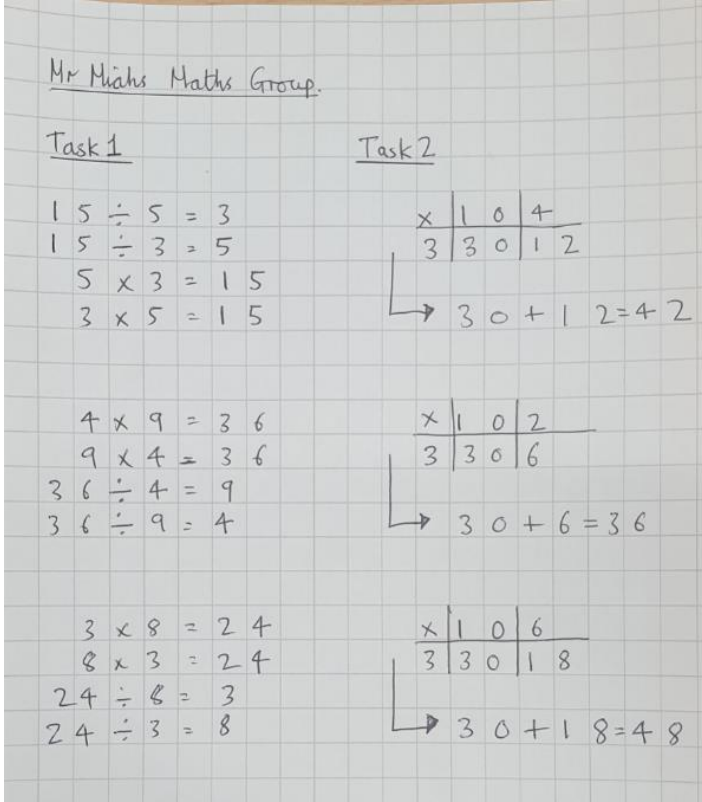 Mr Miahs Maths Group.
Task 1
15 ÷ 5 = 3
15 ÷ 3 = 5
5 x 3 = 15
3 x 5 = 15
4 x 9 = 36
9 x 4 = 36
36 ÷ 4 = 9
36 ÷ 9 = 4
3 x 8 = 24
8 x 3 = 24
24 ÷ 8 = 3
24 ÷ 3 = 8
Task 2
x | 10 | 4
3 | 30 | 12
30 + 12 = 42
x | 10 | 2
3 | 30 | 6
30 + 6 = 36
x | 10 | 6
3 | 30 | 18
30 + 18 = 48